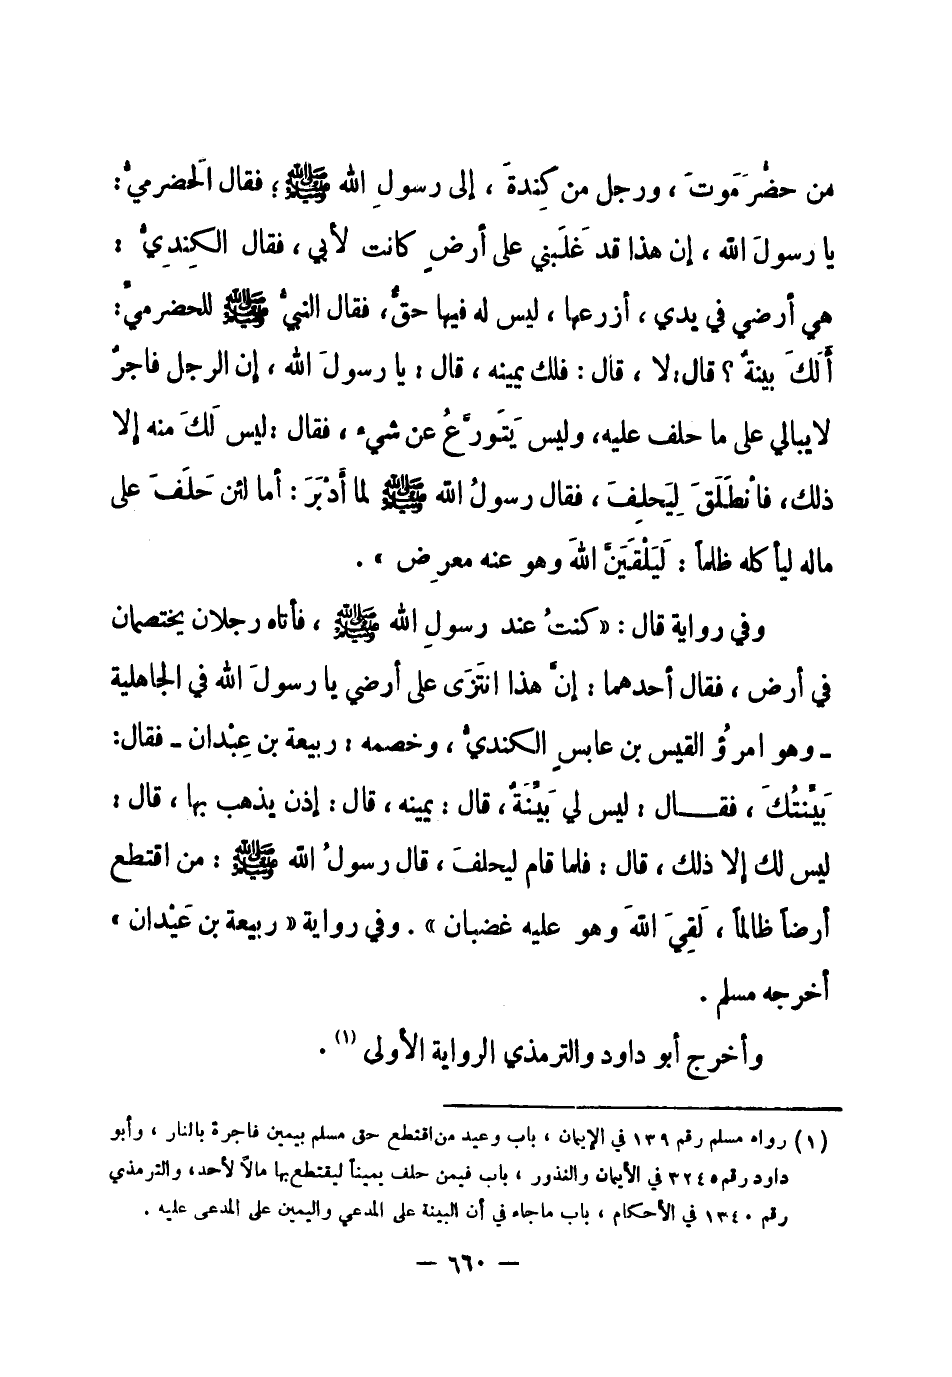 من حضْرَمَوتَ ، ورجل من كِندةَ ، إلى رسولِ الله ﷺ ؛ فقال الَحضرميُّ :
يا رسولَ الله ، إن هذا قد غَلَبني على أرضٍ كانت لأبي ، فقال الكِنديُّ :
هي أرضي في يدي ، أزرعها ، ليس له فيها حقٌّ ، فقال النبيُّ ﷺ للحضرميِّ :
أَلَكَ بينةٌ ؟ قال : لا ، قال : فلك يمينه ، قال : يا رسولَ الله ، إن الرجل فاجرٌ
لا يبالي على ما حلف عليه، وليس يَتَورَّعُ عن شيء ، فقال : ليس لَكَ منه إلا
ذلك، فانْطَلَقَ لِيَحلِفَ ، فقال رسولُ الله ﷺ لما أَدْبَرَ : أما لئن حَلَفَ على
ماله ليأكله ظلماً : لَيَلْقَيَنَّ اللهَ وهو عنه معرِض » .
وفي رواية قال : « كنتُ عند رسولِ الله ﷺ ، فأتاه رجلان يختصمان
في أرض ، فقال أحدهما : إنَّ هذا انتَزَى على أرضي يا رسولَ الله في الجاهلية
ـ وهو امرؤُ القيس بن عابسٍ الكنديُّ ، وخصمه : ربيعة بن عِبْدان ـ فقال :
بَيِّنتُكَ ، فقــــال : ليس لي بَيِّنَةٌ ، قال : يمينه ، قال : إذن يذهب بها ، قال :
ليس لك إلا ذلك ، قال : فلما قام ليحلفَ ، قال رسولُ الله ﷺ : من اقتطع
أرضاً ظالماً ، لَقِيَ اللهَ وهو عليه غضبان » . وفي رواية « ربيعة بن عَيْدان »
أخرجه مسلم .
وأخرج أبو داود والترمذي الرواية الأولى (١) .
(١) رواه مسلم رقم ١٣٩ في الإيمان ، باب وعيد من اقتطع حق مسلم بيمين فاجرة بالنار ، وأبو
داود رقم ٣٢٤٥ في الأيمان والنذور ، باب فيمن حلف يميناً ليقتطع بها مالاً لأحد، والترمذي
رقم ١٣٤٠ في الأحكام ، باب ماجاء في أن البينة على المدعي واليمين على المدعى عليه .
— ٦٦٠ —